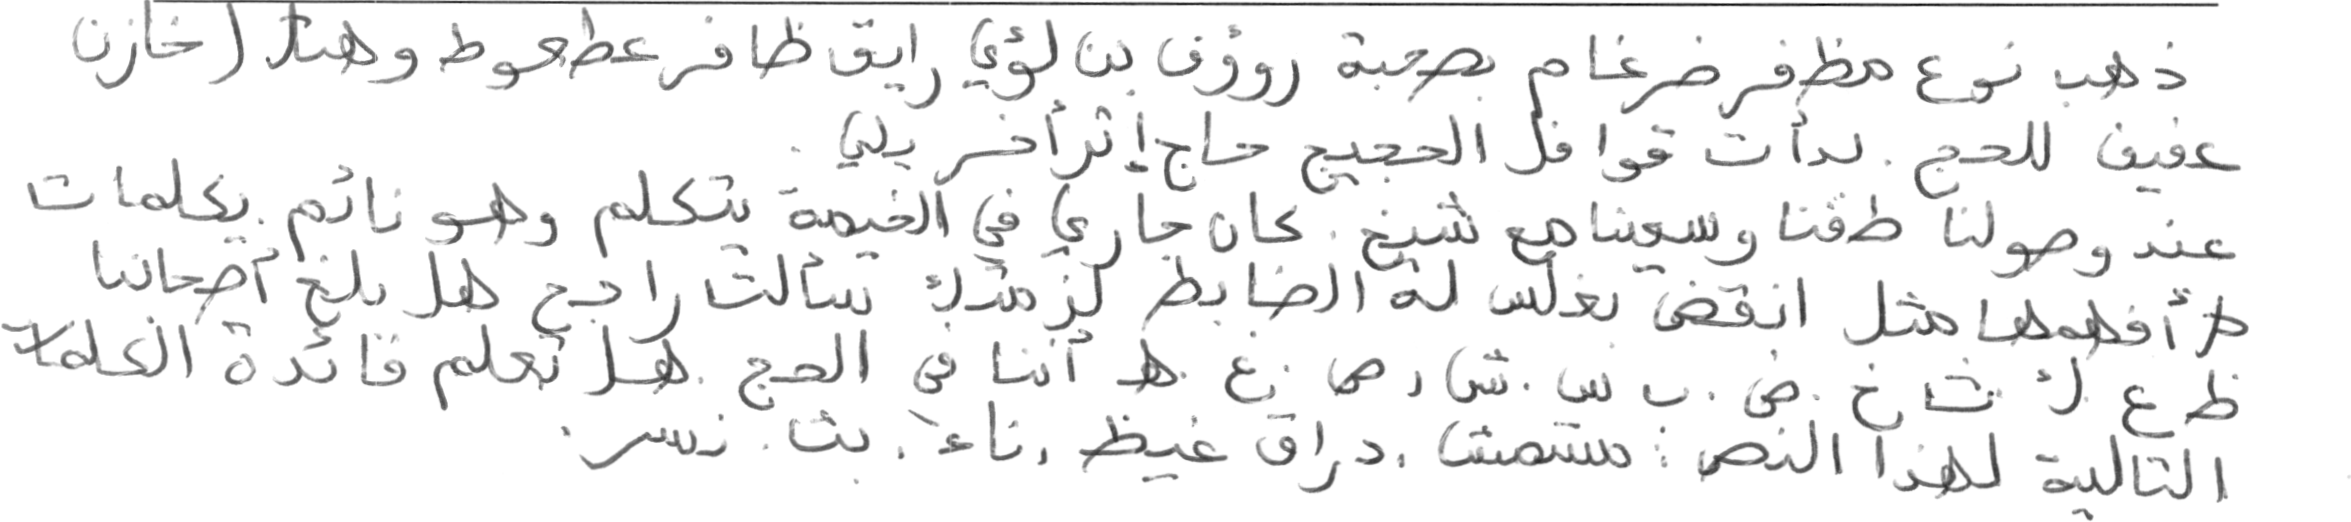 ذهب نوع مظفر ضرغام بصحبة رؤوف بن لؤي رايق ظافر عطعوط وهناك (خازن
عفيف للحج. بدأت قوافل الحجيج حاج إثر أخر يلي.
عند وصولنا طفنا وسعينا مع شيخ. كان جاري في الخيمة يتكلم وهو نائم بكلمات
لا أفهمها مثل انقض نغلس له الضابط لز مثلك سألت راجح هل بلغ أصحابنا
ظ ع ك ث خ. ض. ب س. ش, ص. غ. هـ أننا في الحج. هل تعلم فائدة الكلمات
التالية لهذا النص: مشمش, دراق غيظ, ناء, بث. نسر.